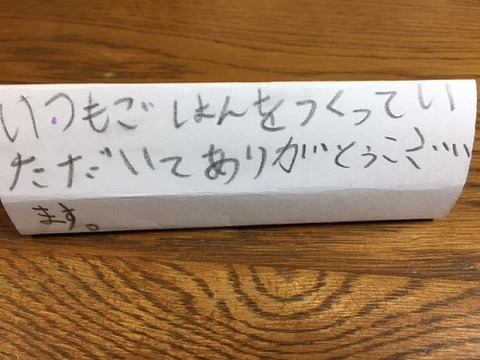 いつもごはんをつくってい
ただいてありがとうござい
ます。